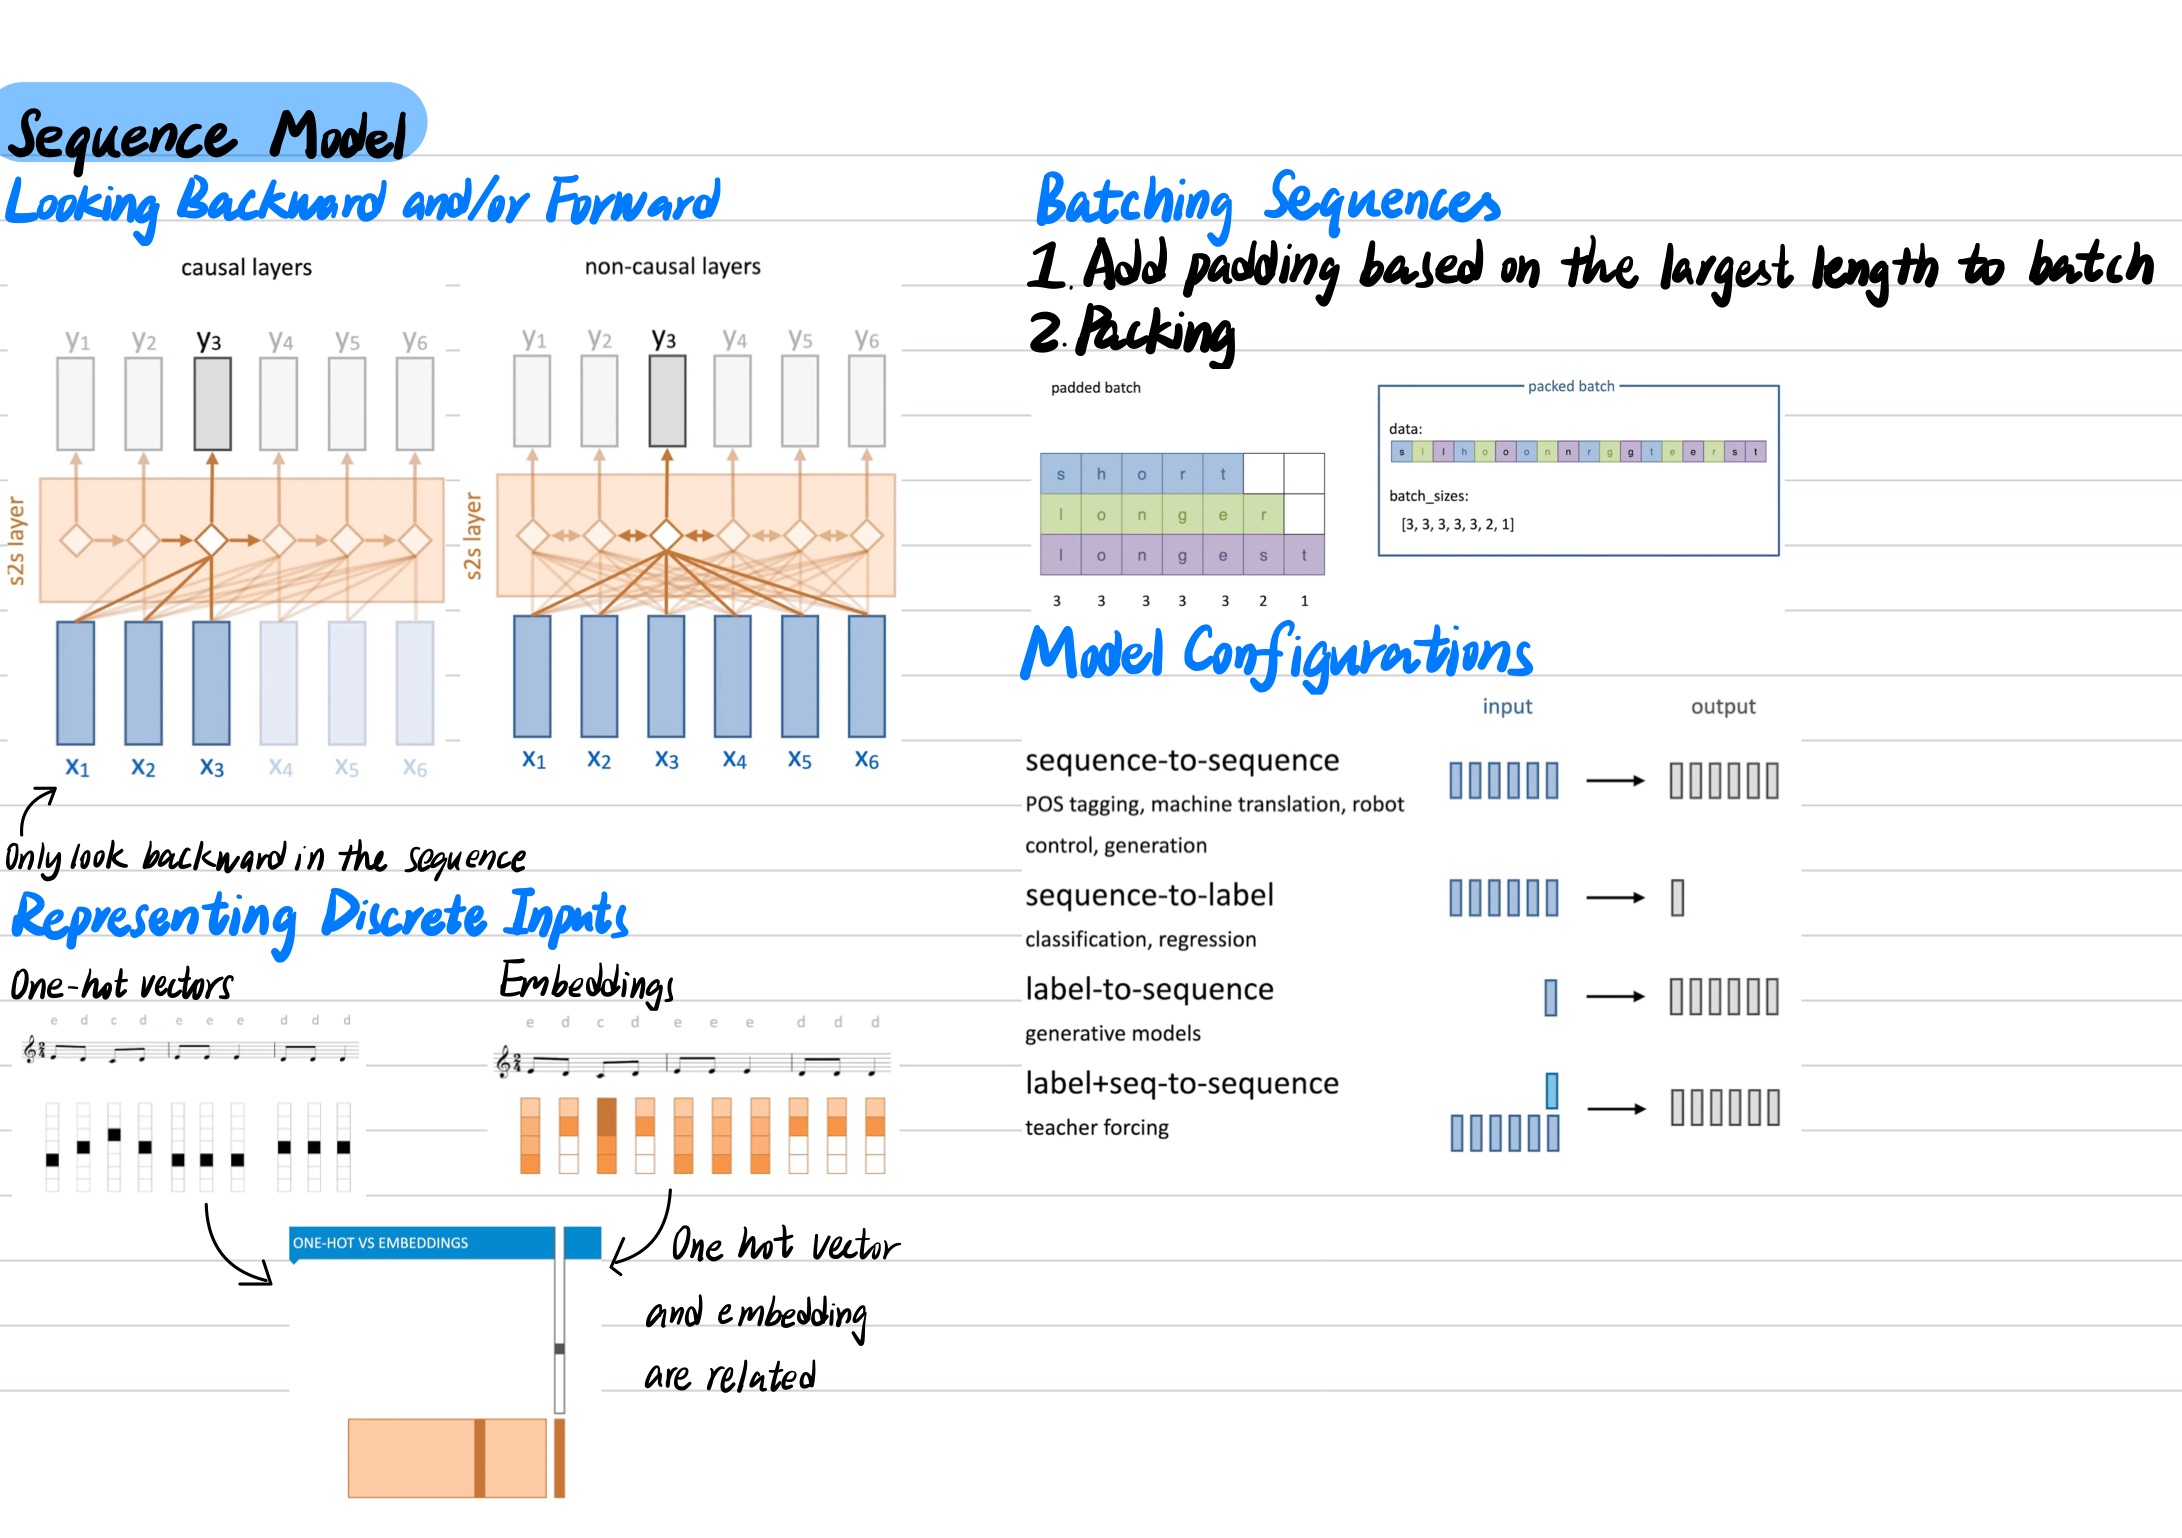 Sequence Model
Looking Backward and/or Forward
causal layers
non-causal layers
y1 y2 y3 y4 y5 y6
y1 y2 y3 y4 y5 y6
s2s layer
s2s layer
x1 x2 x3 x4 x5 x6
x1 x2 x3 x4 x5 x6
Only look backward in the sequence
Representing Discrete Inputs
One-hot vectors
Embeddings
e d c d e e e d d d
e d c d e e e d d d
2
4
2
4
ONE-HOT VS EMBEDDINGS
One hot vector
and embedding
are related
Batching Sequences
1. Add padding based on the largest length to batch
2. Packing
padded batch
s h o r t
l o n g e r
l o n g e s t
3 3 3 3 3 2 1
packed batch
data:
s l l h o o o n n r g g t e e r s t
batch_sizes:
[3, 3, 3, 3, 3, 2, 1]
Model Configurations
input output
sequence-to-sequence
POS tagging, machine translation, robot
control, generation
sequence-to-label
classification, regression
label-to-sequence
generative models
label+seq-to-sequence
teacher forcing